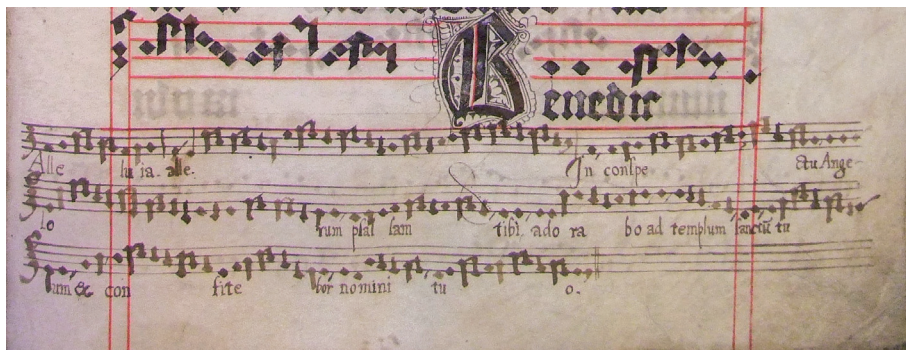 Benedic
Alle lu ia. alle. In conspe ctu Ange-
lo rum psal lam tibi, ado ra bo ad templum sanctū tu
um & con fite bor nomini tu o.